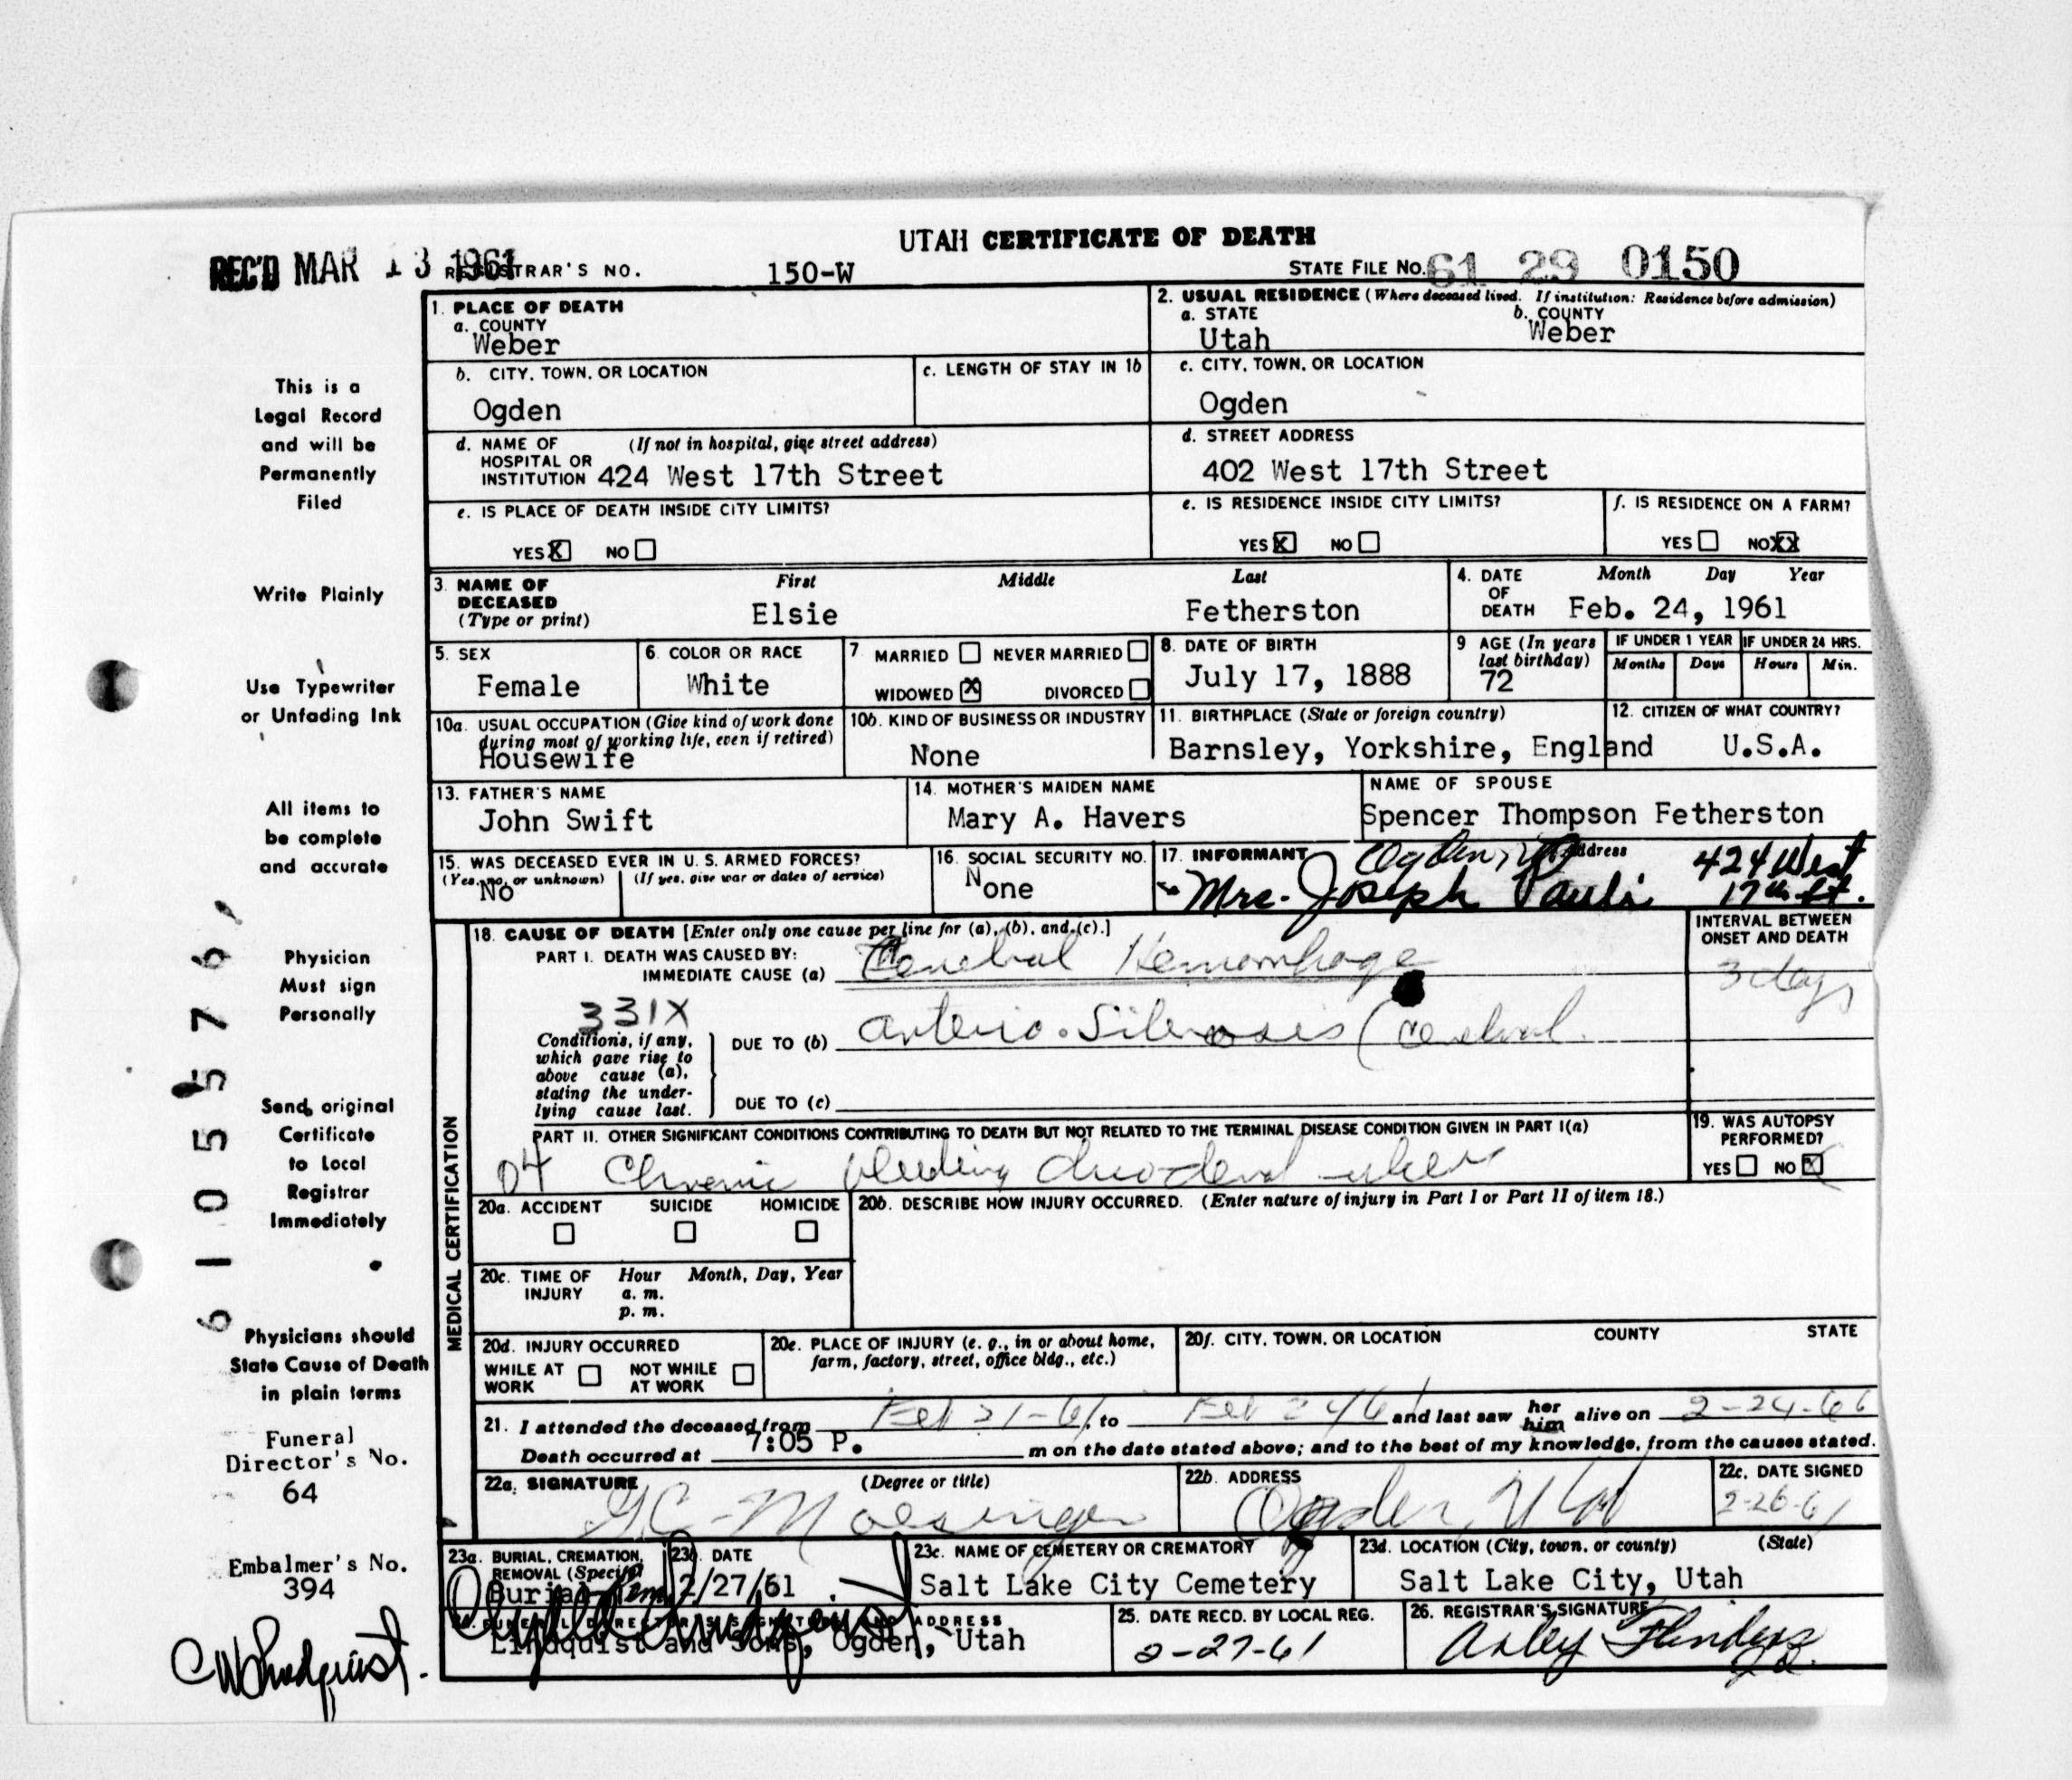 UTAH CERTIFICATE OF DEATH
REC'D MAR 13 1961 REGISTRAR'S NO. 150-W STATE FILE NO. 61 29 0150
1. PLACE OF DEATH
a. COUNTY
Weber
2. USUAL RESIDENCE (Where deceased lived. If institution: Residence before admission)
a. STATE b. COUNTY
Utah Weber
b. CITY, TOWN, OR LOCATION
Ogden
c. LENGTH OF STAY IN 1b
c. CITY, TOWN, OR LOCATION
Ogden
d. NAME OF (If not in hospital, give street address)
HOSPITAL OR
INSTITUTION 424 West 17th Street
d. STREET ADDRESS
402 West 17th Street
e. IS PLACE OF DEATH INSIDE CITY LIMITS?
YES X NO
e. IS RESIDENCE INSIDE CITY LIMITS?
YES X NO
f. IS RESIDENCE ON A FARM?
YES NO XX
3. NAME OF DECEASED (Type or print)
First Middle Last
Elsie Fetherston
4. DATE OF DEATH Month Day Year
Feb. 24, 1961
5. SEX
Female
6. COLOR OR RACE
White
7. MARRIED NEVER MARRIED
WIDOWED X DIVORCED
8. DATE OF BIRTH
July 17, 1888
9 AGE (In years last birthday)
72
IF UNDER 1 YEAR IF UNDER 24 HRS.
Months Days Hours Min.
10a. USUAL OCCUPATION (Give kind of work done
during most of working life, even if retired)
Housewife
10b. KIND OF BUSINESS OR INDUSTRY
None
11. BIRTHPLACE (State or foreign country)
Barnsley, Yorkshire, England
12. CITIZEN OF WHAT COUNTRY?
U.S.A.
13. FATHER'S NAME
John Swift
14. MOTHER'S MAIDEN NAME
Mary A. Havers
NAME OF SPOUSE
Spencer Thompson Fetherston
15. WAS DECEASED EVER IN U. S. ARMED FORCES?
(Yes, no, or unknown) (If yes, give war or dates of service)
No
16. SOCIAL SECURITY NO.
None
17. INFORMANT Address
Ogden, 424 West
Mrs. Joseph Pauli 17th St.
MEDICAL CERTIFICATION
18. CAUSE OF DEATH [Enter only one cause per line for (a), (b), and (c).]
PART I. DEATH WAS CAUSED BY:
IMMEDIATE CAUSE (a) Cerebral Hemorrhage
INTERVAL BETWEEN
ONSET AND DEATH
3 days
331X
Conditions, if any,
which gave rise to
above cause (a),
stating the under-
lying cause last.
DUE TO (b) Arterio-Silerosis (Cerebral
DUE TO (c)
PART II. OTHER SIGNIFICANT CONDITIONS CONTRIBUTING TO DEATH BUT NOT RELATED TO THE TERMINAL DISEASE CONDITION GIVEN IN PART I(a)
04 Chronic bleeding duodenal ulcer
19. WAS AUTOPSY
PERFORMED?
YES NO X
20a. ACCIDENT SUICIDE HOMICIDE
20b. DESCRIBE HOW INJURY OCCURRED. (Enter nature of injury in Part I or Part II of item 18.)
20c. TIME OF INJURY Hour Month, Day, Year
a. m.
p. m.
20d. INJURY OCCURRED
WHILE AT WORK NOT WHILE AT WORK
20e. PLACE OF INJURY (e. g., in or about home,
farm, factory, street, office bldg., etc.)
20f. CITY, TOWN, OR LOCATION COUNTY STATE
21. I attended the deceased from Feb 21-61, to Feb 24 61 and last saw her him alive on 2-24-66
Death occurred at 7:05 P. m on the date stated above; and to the best of my knowledge, from the causes stated.
22a. SIGNATURE (Degree or title)
G.C. Moesinger
22b. ADDRESS
Ogden, Utah
22c. DATE SIGNED
2-26-61
23a. BURIAL, CREMATION,
REMOVAL (Specify)
Burial
23b. DATE
2/27/61
23c. NAME OF CEMETERY OR CREMATORY
Salt Lake City Cemetery
23d. LOCATION (City, town, or county) (State)
Salt Lake City, Utah
ADDRESS
Lindquist and Sons, Ogden, Utah
25. DATE RECD. BY LOCAL REG.
2-27-61
26. REGISTRAR'S SIGNATURE
Flinders
This is a
Legal Record
and will be
Permanently
Filed
Write Plainly
Use Typewriter
or Unfading Ink
All items to
be complete
and accurate
Physician
Must sign
Personally
Send original
Certificate
to Local
Registrar
Immediately
Physicians should
State Cause of Death
in plain terms
Funeral
Director's No.
64
Embalmer's No.
394
CW Lindquist.
61055576